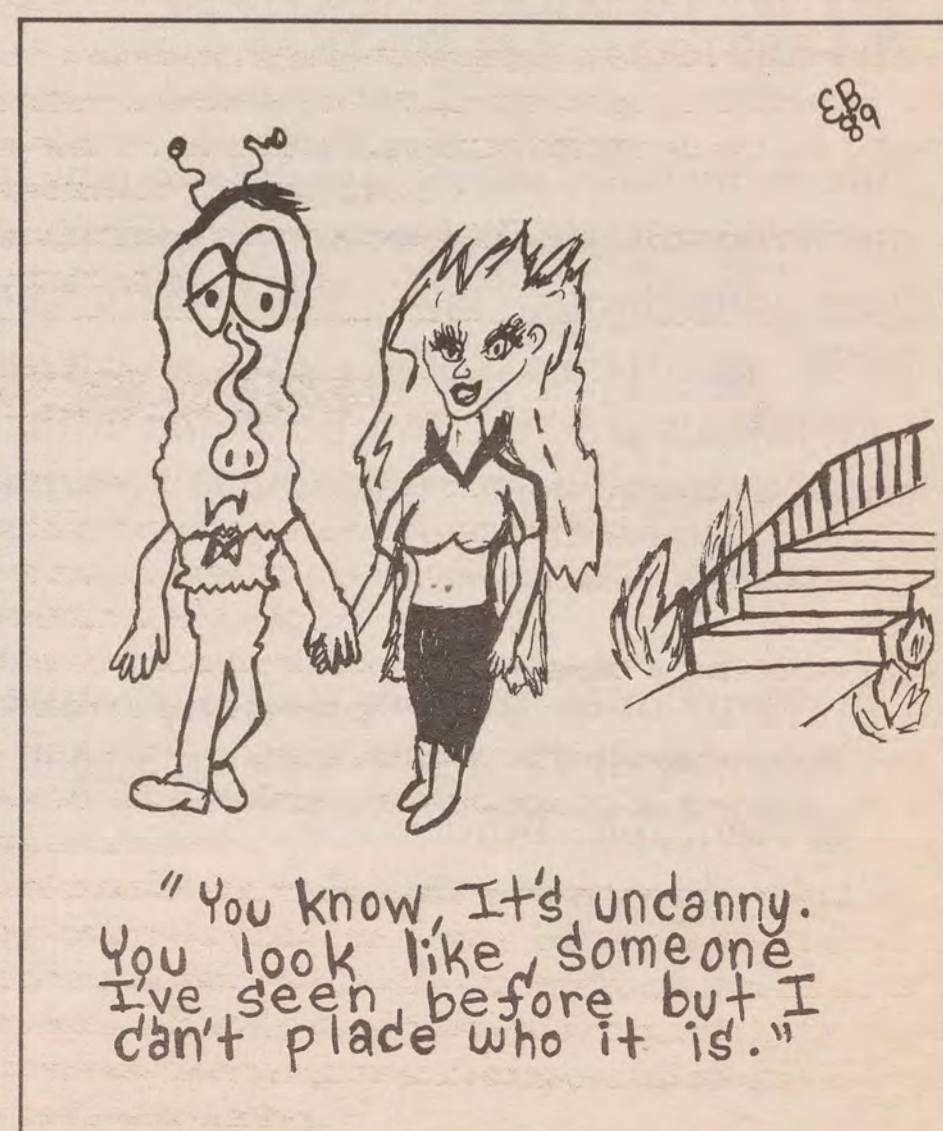 EB
89
"You know, It's uncanny.
You look like someone
I've seen before but I
can't place who it is."